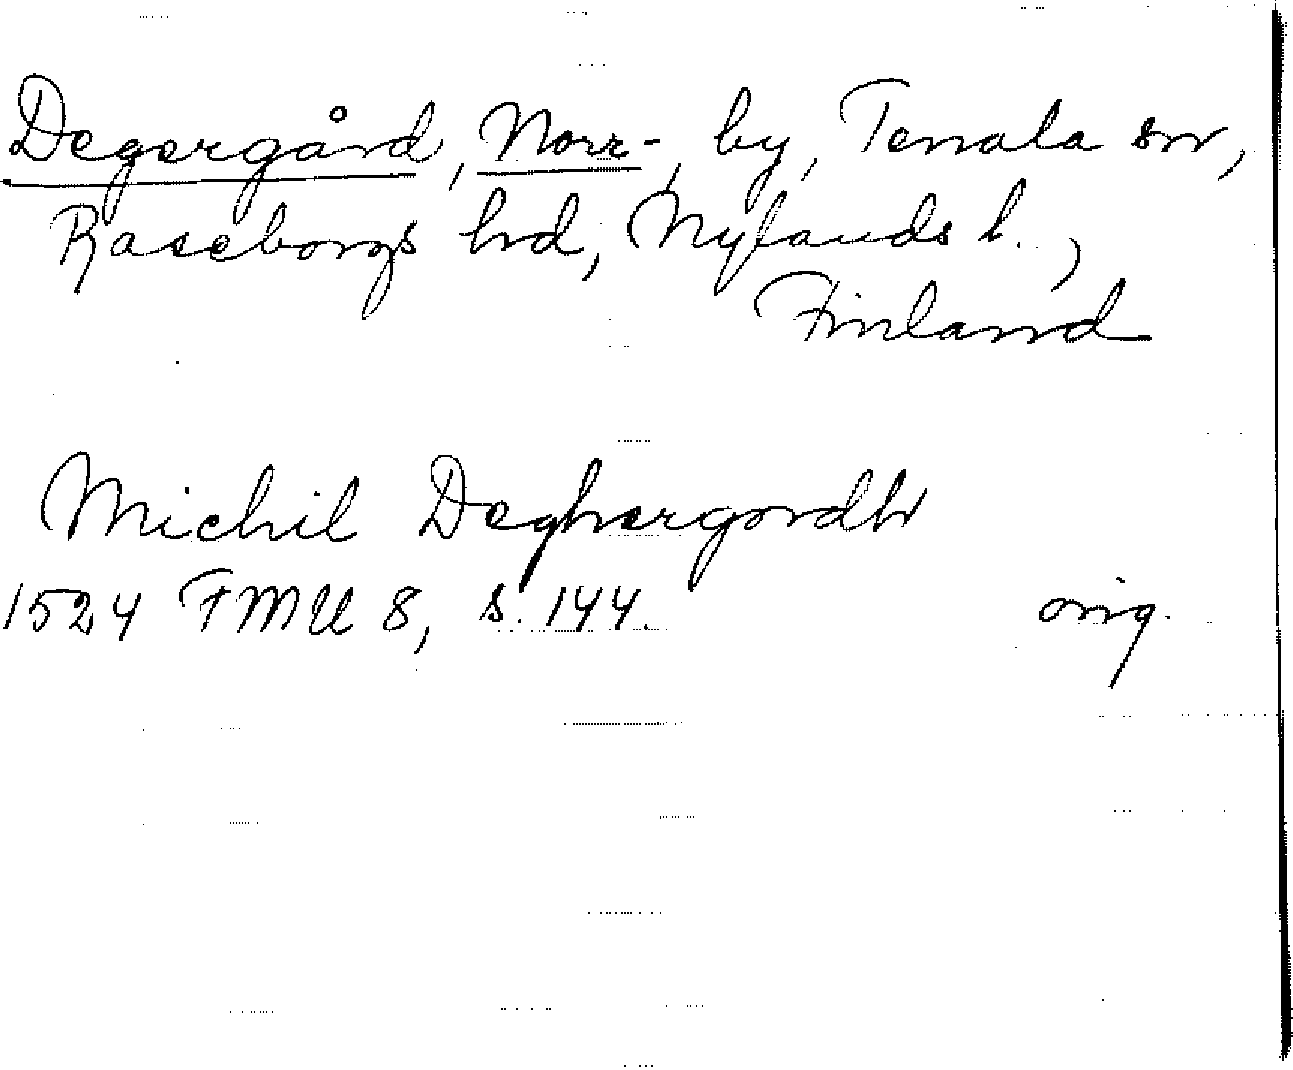 Degergård, Norr-, by, Tenala sn,
Raseborgs hd, Nylands l.,
Finland
Michil Deghergordh
1524 FMU 8, s. 144.
orig.